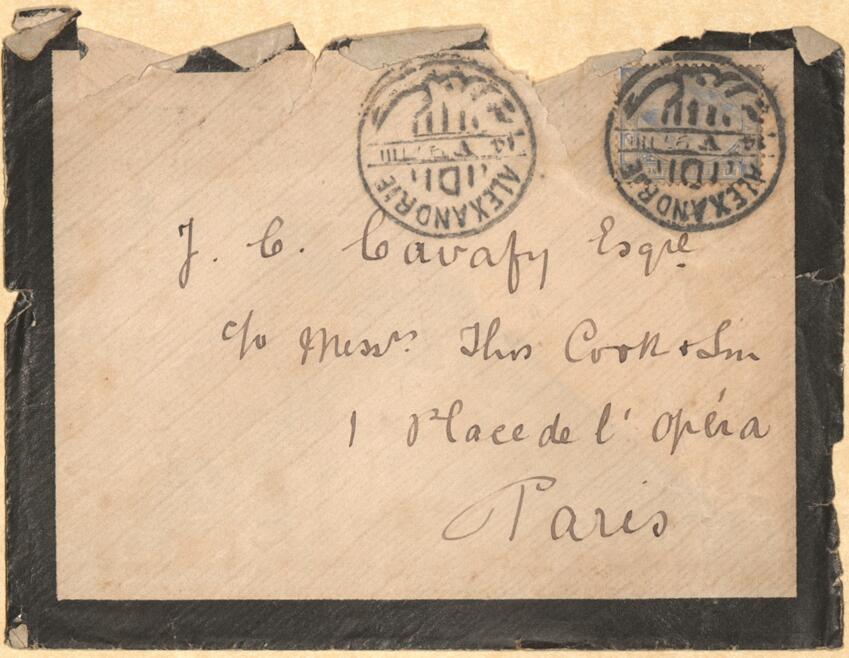 ALEXANDRIE
ALEXANDRIE
J. C. Cavafy Esqre
c/o Messrs Thos Cook & Son
1 Place de l'Opéra
Paris